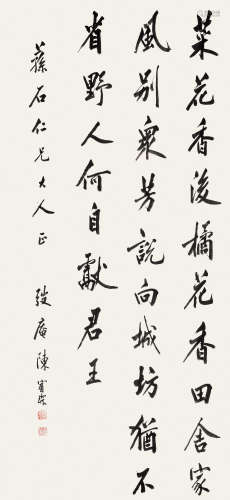 菜花香後橘花香田舍家
風別衆芳說向城坊猶不
省野人何自獻君王
蘇石仁兄大人正 弢庵陳寶琛